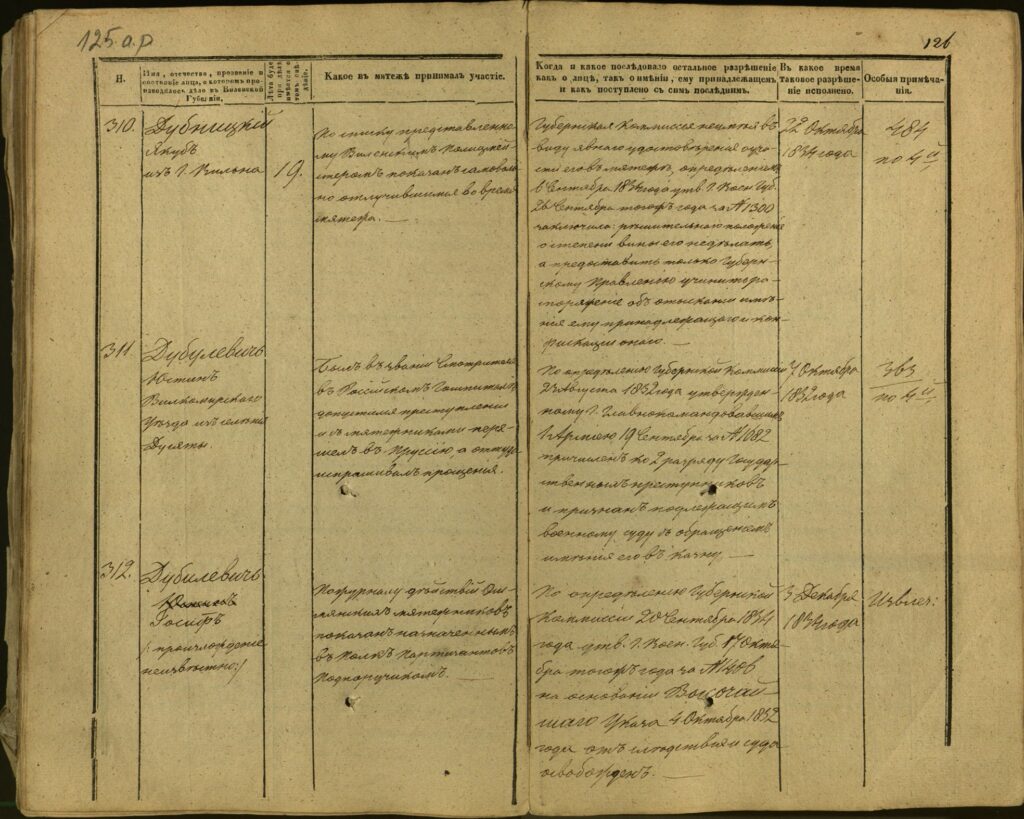 125 а.р
126
Н.
Имя, отечество, прозвание и
состояніе лица, о которомъ про-
изводилось дѣло въ Виленской
Губерніи.
Какое въ мятежѣ принималъ участіе.
Когда и какое послѣдовало остальное разрѣшеніе
какъ о лицѣ, такъ о имѣніи, ему принадлежащемъ
и какъ поступлено съ симъ послѣднимъ.
Въ какое время
таковое разрѣше-
ніе исполнено.
Особыя примѣча-
нія.
310.
Дубницкій
Якубъ
изъ Г. Вильна
19.
По списку представленно-
му Виленскимъ Полицмей-
стеромъ показанъ самоволь-
но отлучившимся во время
мятежа.
Губернская Коммиссія неимѣя въ
виду явнаго удостовѣренія о уча-
стіи его въ мятежѣ, опредѣленіемъ
6 Сентября 1834 года утв. Г. Воен. Губ.
26 Сентября тогожъ года за № 1300
заключила: рѣшительнаго положенія
о степени вины его недѣлать,
а предоставить только Губерн-
скому Правленію учинить ра-
споряженіе объ отысканіи имѣ-
нія ему принадлежащаго и кон-
фискаціи онаго.
22 Октября
1834 года
484
по 4й
311
Дубулевичъ
Юстинъ
Вилкомирскаго
Уѣзда изъ имѣнія
Дусяты.
Былъ въ званіи Смотрителя
въ Россійскомъ Гошпиталѣ
допустился преступленія
и съ мятежниками пере-
шелъ въ Пруссію, а оттуда
испрашивалъ прощенія.
По опредѣленію Губернской Коммисіи
23 Августа 1832 года утвержден-
ному Г. Главнокомандовавшимъ
1 Арміею 19 Сентября за № 1682
причисленъ ко 2 разряду Государ-
ственныхъ преступниковъ
и признанъ подлежащимъ
военному суду съ обращеніемъ
имѣнія его въ казну.
7 Октября
1832 года
363
по 4й
312.
Дубилевичъ
Іосифъ
/:происхожденіе
неизвѣстно:/
По журналу дѣйствій Ош-
мянскихъ мятежниковъ
показанъ назначеннымъ
въ Полкъ Партизантовъ
Подпоручикомъ.
По опредѣленію Губернской
Коммисіи 20 Сентября 1834
года утв. Г. Воен. Губ. 17 Октя-
бря тогожъ года за № 1406
на основаніи Высочай-
шаго Указа 4 Октября 1832
года отъ слѣдствія и суда
освобожденъ.
3 Декабря
1834 года
Извлеч: